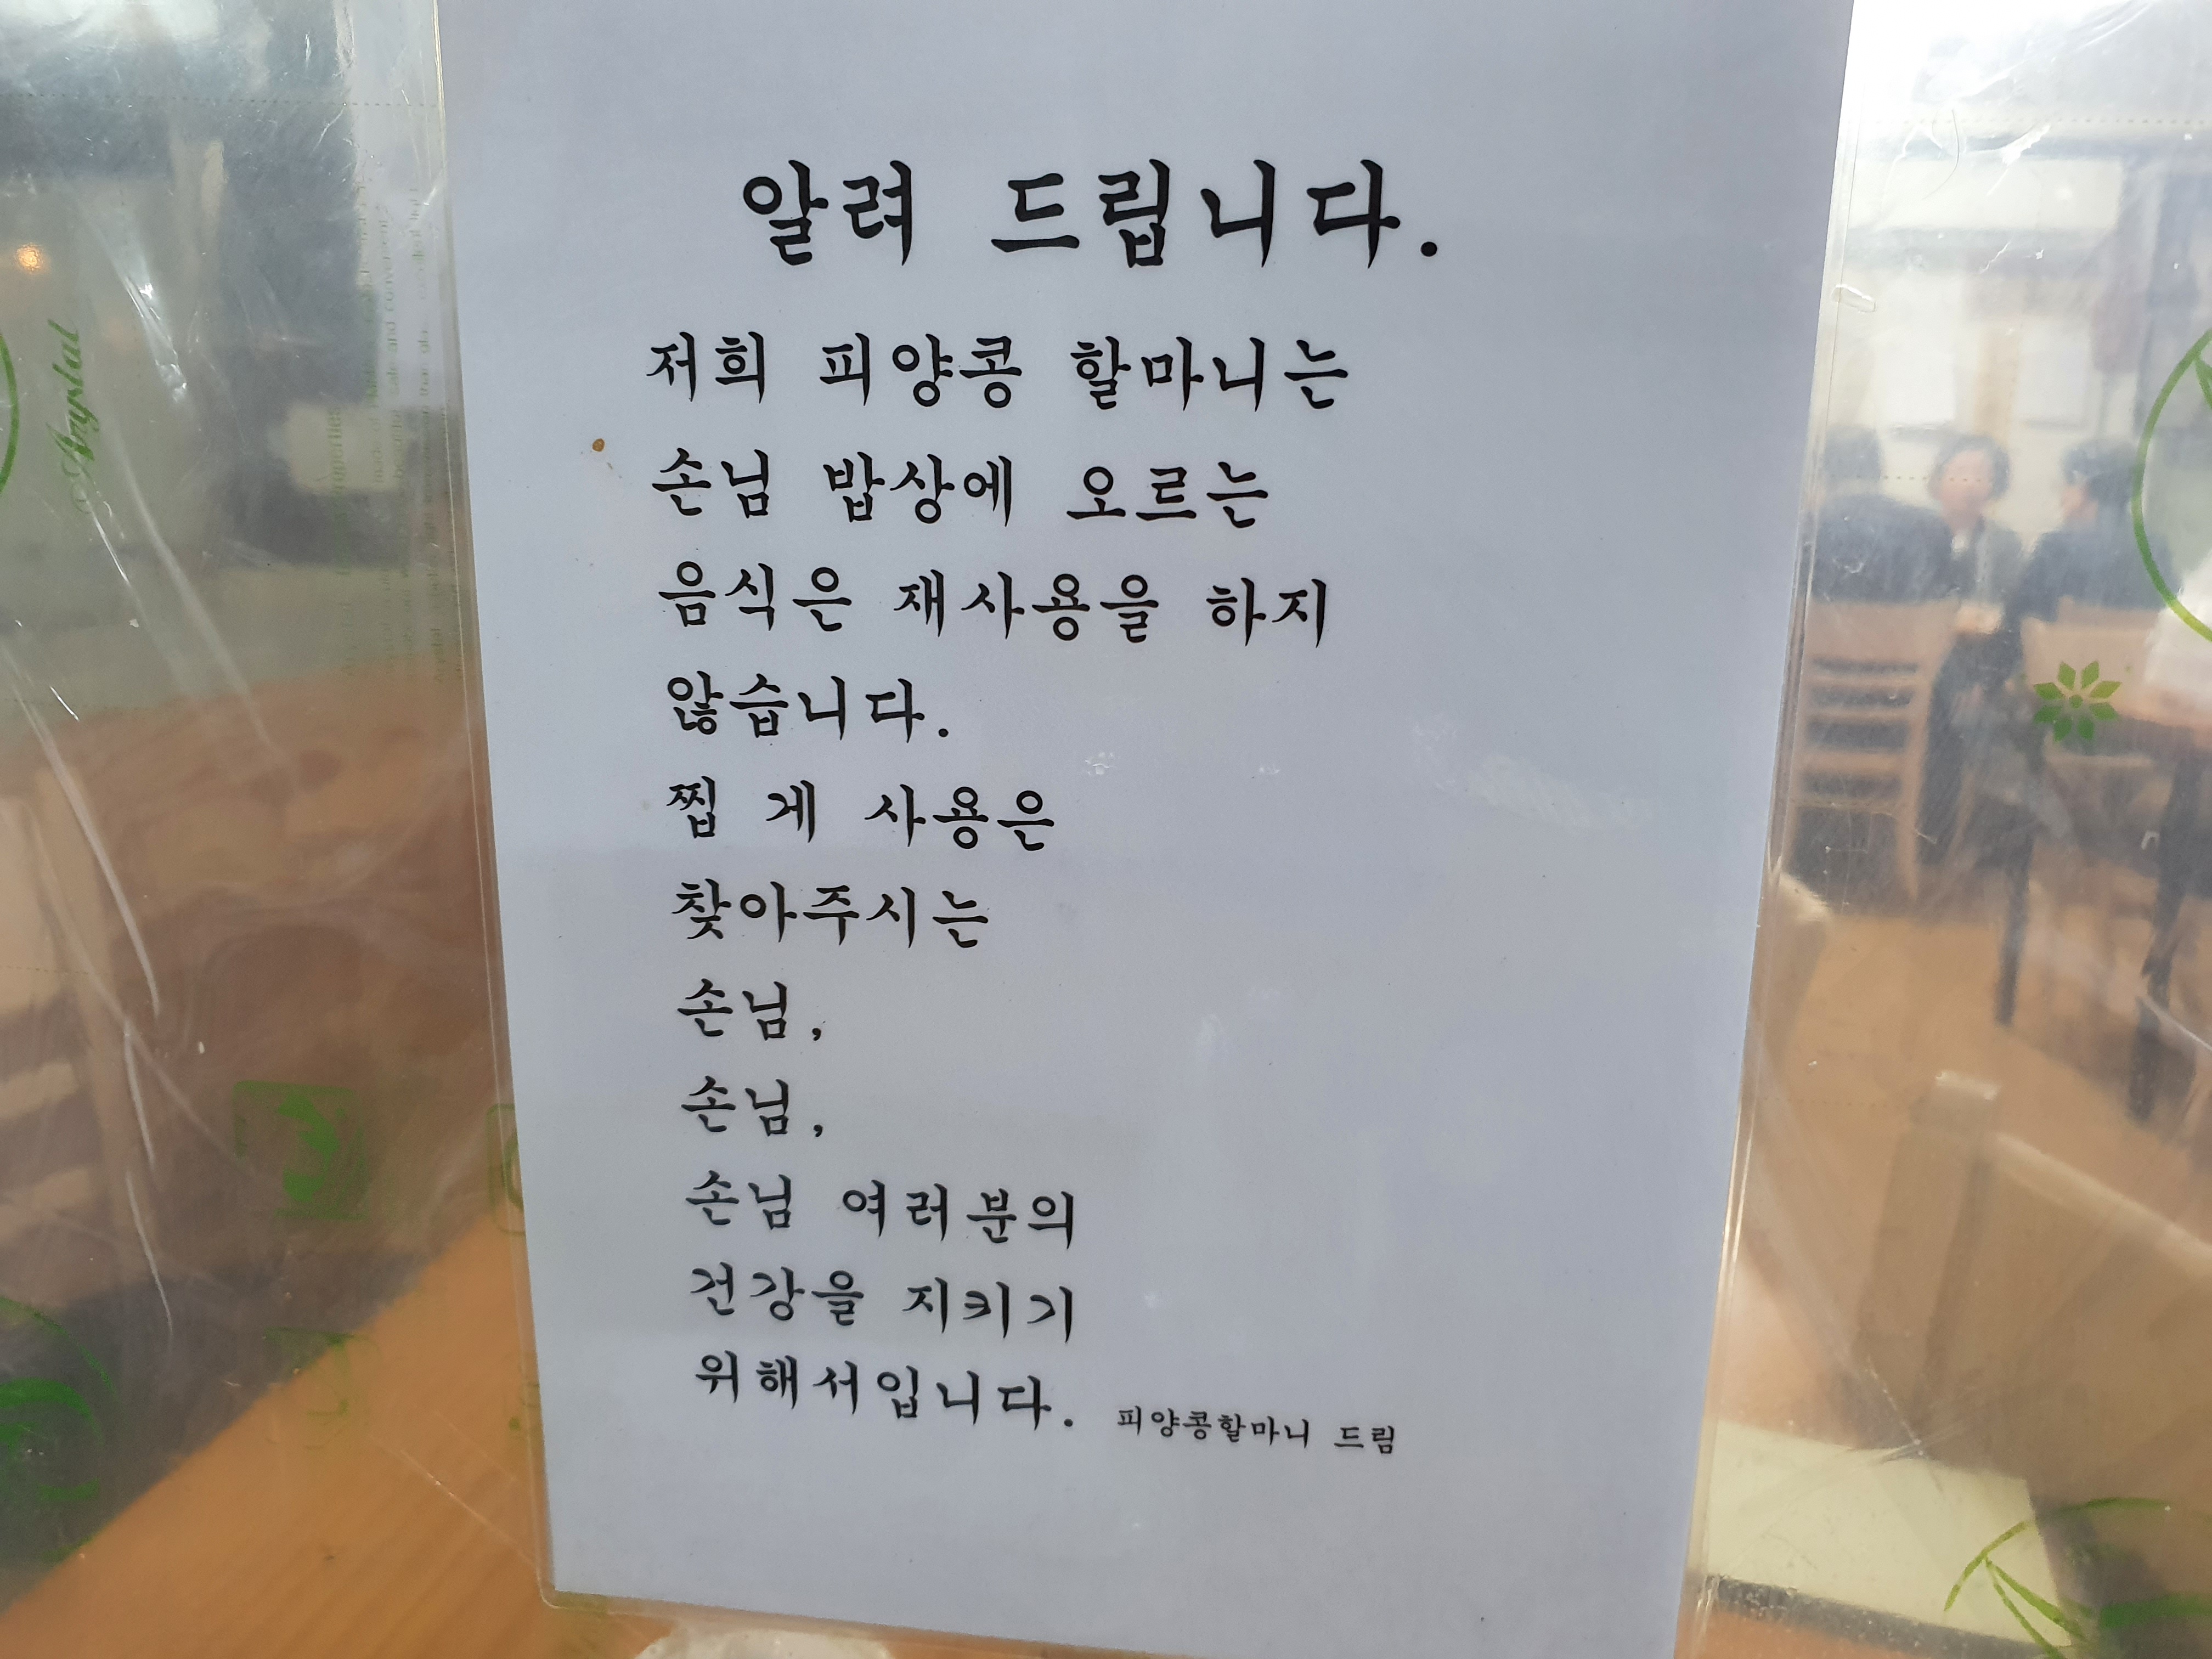 알려 드립니다.
저희 피양콩 할마니는
손님 밥상에 오르는
음식은 재사용을 하지
않습니다.
찝 게 사용은
찾아주시는
손님,
손님,
손님 여러분의
건강을 지키기
위해서입니다. 피양콩할마니 드림
Anystal